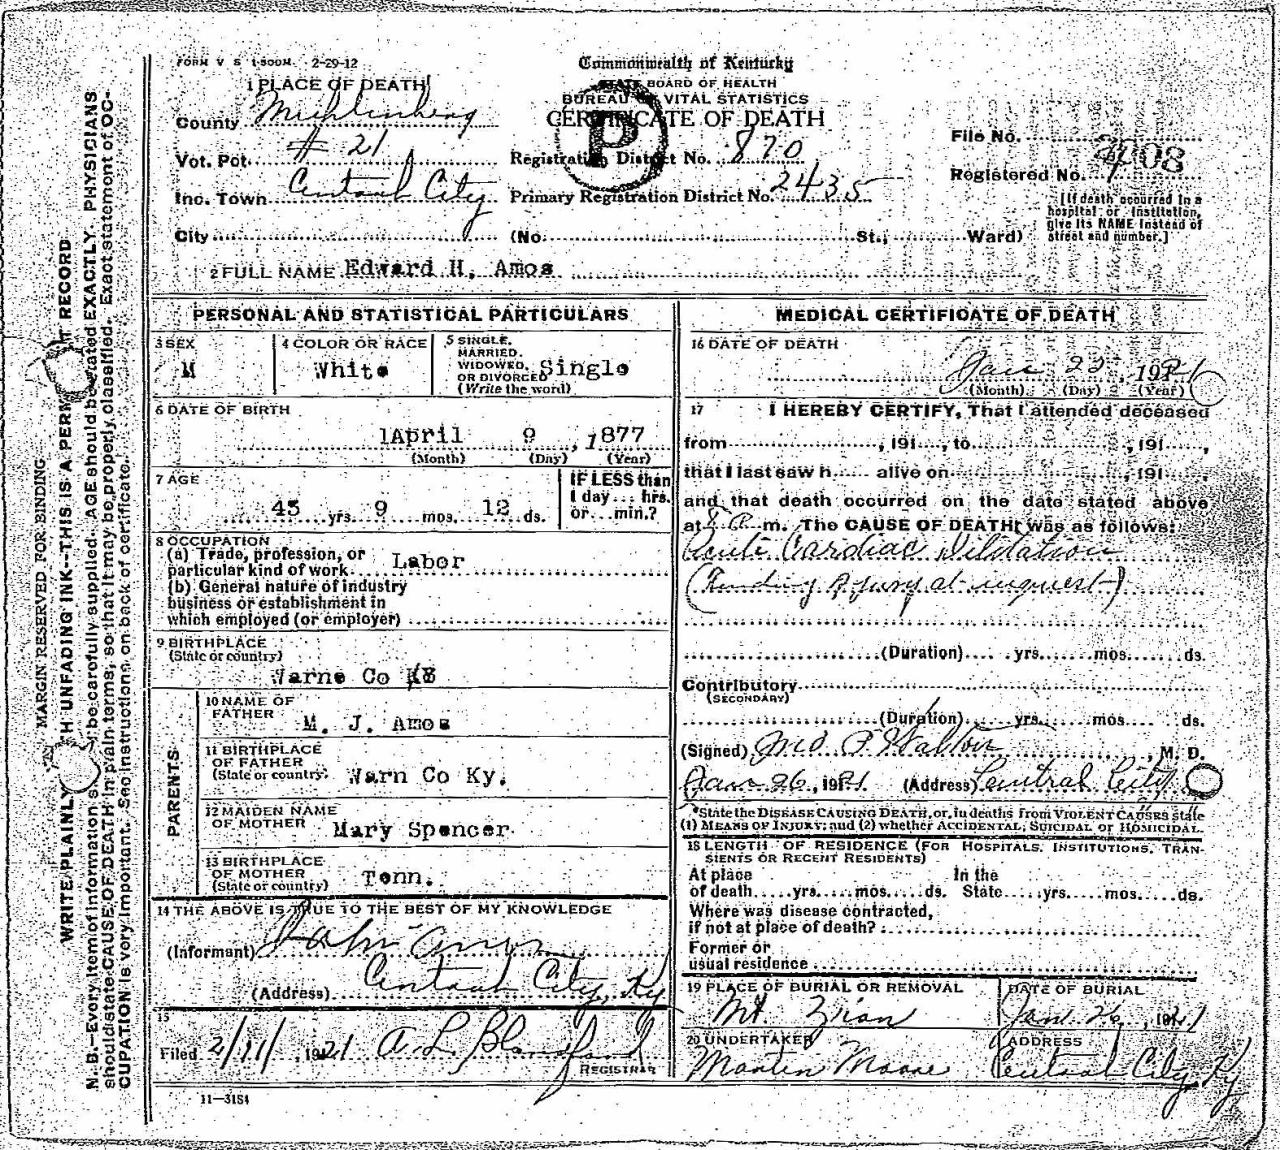 FORM V S 1-500M. 2-29-12
Commonwealth of Kentucky
STATE BOARD OF HEALTH
BUREAU OF VITAL STATISTICS
CERTIFICATE OF DEATH
P
1 PLACE OF DEATH
County Muhlenberg
Vot. Pct. # 21
Inc. Town Central City
City (No. St., Ward)
Registration District No. 870
Primary Registration District No. 2435
File No.
Registered No.
[If death occurred in a
hospital or institution,
give its NAME instead of
street and number.]
2 FULL NAME Edward H, Amos
PERSONAL AND STATISTICAL PARTICULARS
3 SEX
M
4 COLOR OR RACE
White
5 SINGLE,
MARRIED,
WIDOWED,
OR DIVORCED Single
(Write the word)
6 DATE OF BIRTH
April 9, 1877
(Month) (Day) (Year)
7 AGE
45 yrs. 9 mos. 12 ds.
IF LESS than
1 day... hrs.
or...min.?
8 OCCUPATION
(a) Trade, profession, or
particular kind of work Labor
(b) General nature of industry
business or establishment in
which employed (or employer)
9 BIRTHPLACE
(State or country)
Warne Co
PARENTS
10 NAME OF
FATHER M. J. Amos
11 BIRTHPLACE
OF FATHER
(State or country) Warn Co Ky.
12 MAIDEN NAME
OF MOTHER Mary Spencer
13 BIRTHPLACE
OF MOTHER
(State or country) Tenn.
14 THE ABOVE IS TRUE TO THE BEST OF MY KNOWLEDGE
(Informant) John Amos
(Address) Central City, Ky
15
Filed 2/11, 1921 A. L. Blandford
REGISTRAR
11-3184
MEDICAL CERTIFICATE OF DEATH
16 DATE OF DEATH
Jan 22, 1921
(Month) (Day) (Year)
17 I HEREBY CERTIFY, That I attended deceased
from , 191 , to , 191 ,
that I last saw h alive on , 191 ,
and that death occurred on the date stated above
at 8 a m. The CAUSE OF DEATH was as follows:
Acute Cardiac Dilatation
(Finding of jury at inquest)
(Duration) yrs. mos. ds.
Contributory
(SECONDARY)
(Duration) yrs. mos. ds.
(Signed) Jno P Walton, M. D.
Jan 26, 1921 (Address) Central City
*State the DISEASE CAUSING DEATH, or, in deaths from VIOLENT CAUSES state
(1) MEANS OF INJURY; and (2) whether ACCIDENTAL, SUICIDAL OR HOMICIDAL.
18 LENGTH OF RESIDENCE (FOR HOSPITALS, INSTITUTIONS, TRAN-
SIENTS OR RECENT RESIDENTS)
At place In the
of death yrs. mos. ds. State yrs. mos. ds.
Where was disease contracted,
if not at place of death?
Former or
usual residence
19 PLACE OF BURIAL OR REMOVAL
Mt. Zion
DATE OF BURIAL
Jan 26, 1921
20 UNDERTAKER
Martin Moore
ADDRESS
Central City Ky
MARGIN RESERVED FOR BINDING
WRITE PLAINLY H UNFADING INK--THIS IS A PERM T RECORD
N. B.--Every item of information s be carefully supplied. AGE should be stated EXACTLY. PHYSICIANS
should state CAUSE OF DEATH in plain terms, so that it may be properly classified. Exact statement of OC-
CUPATION is very important. See instructions on back of certificate.